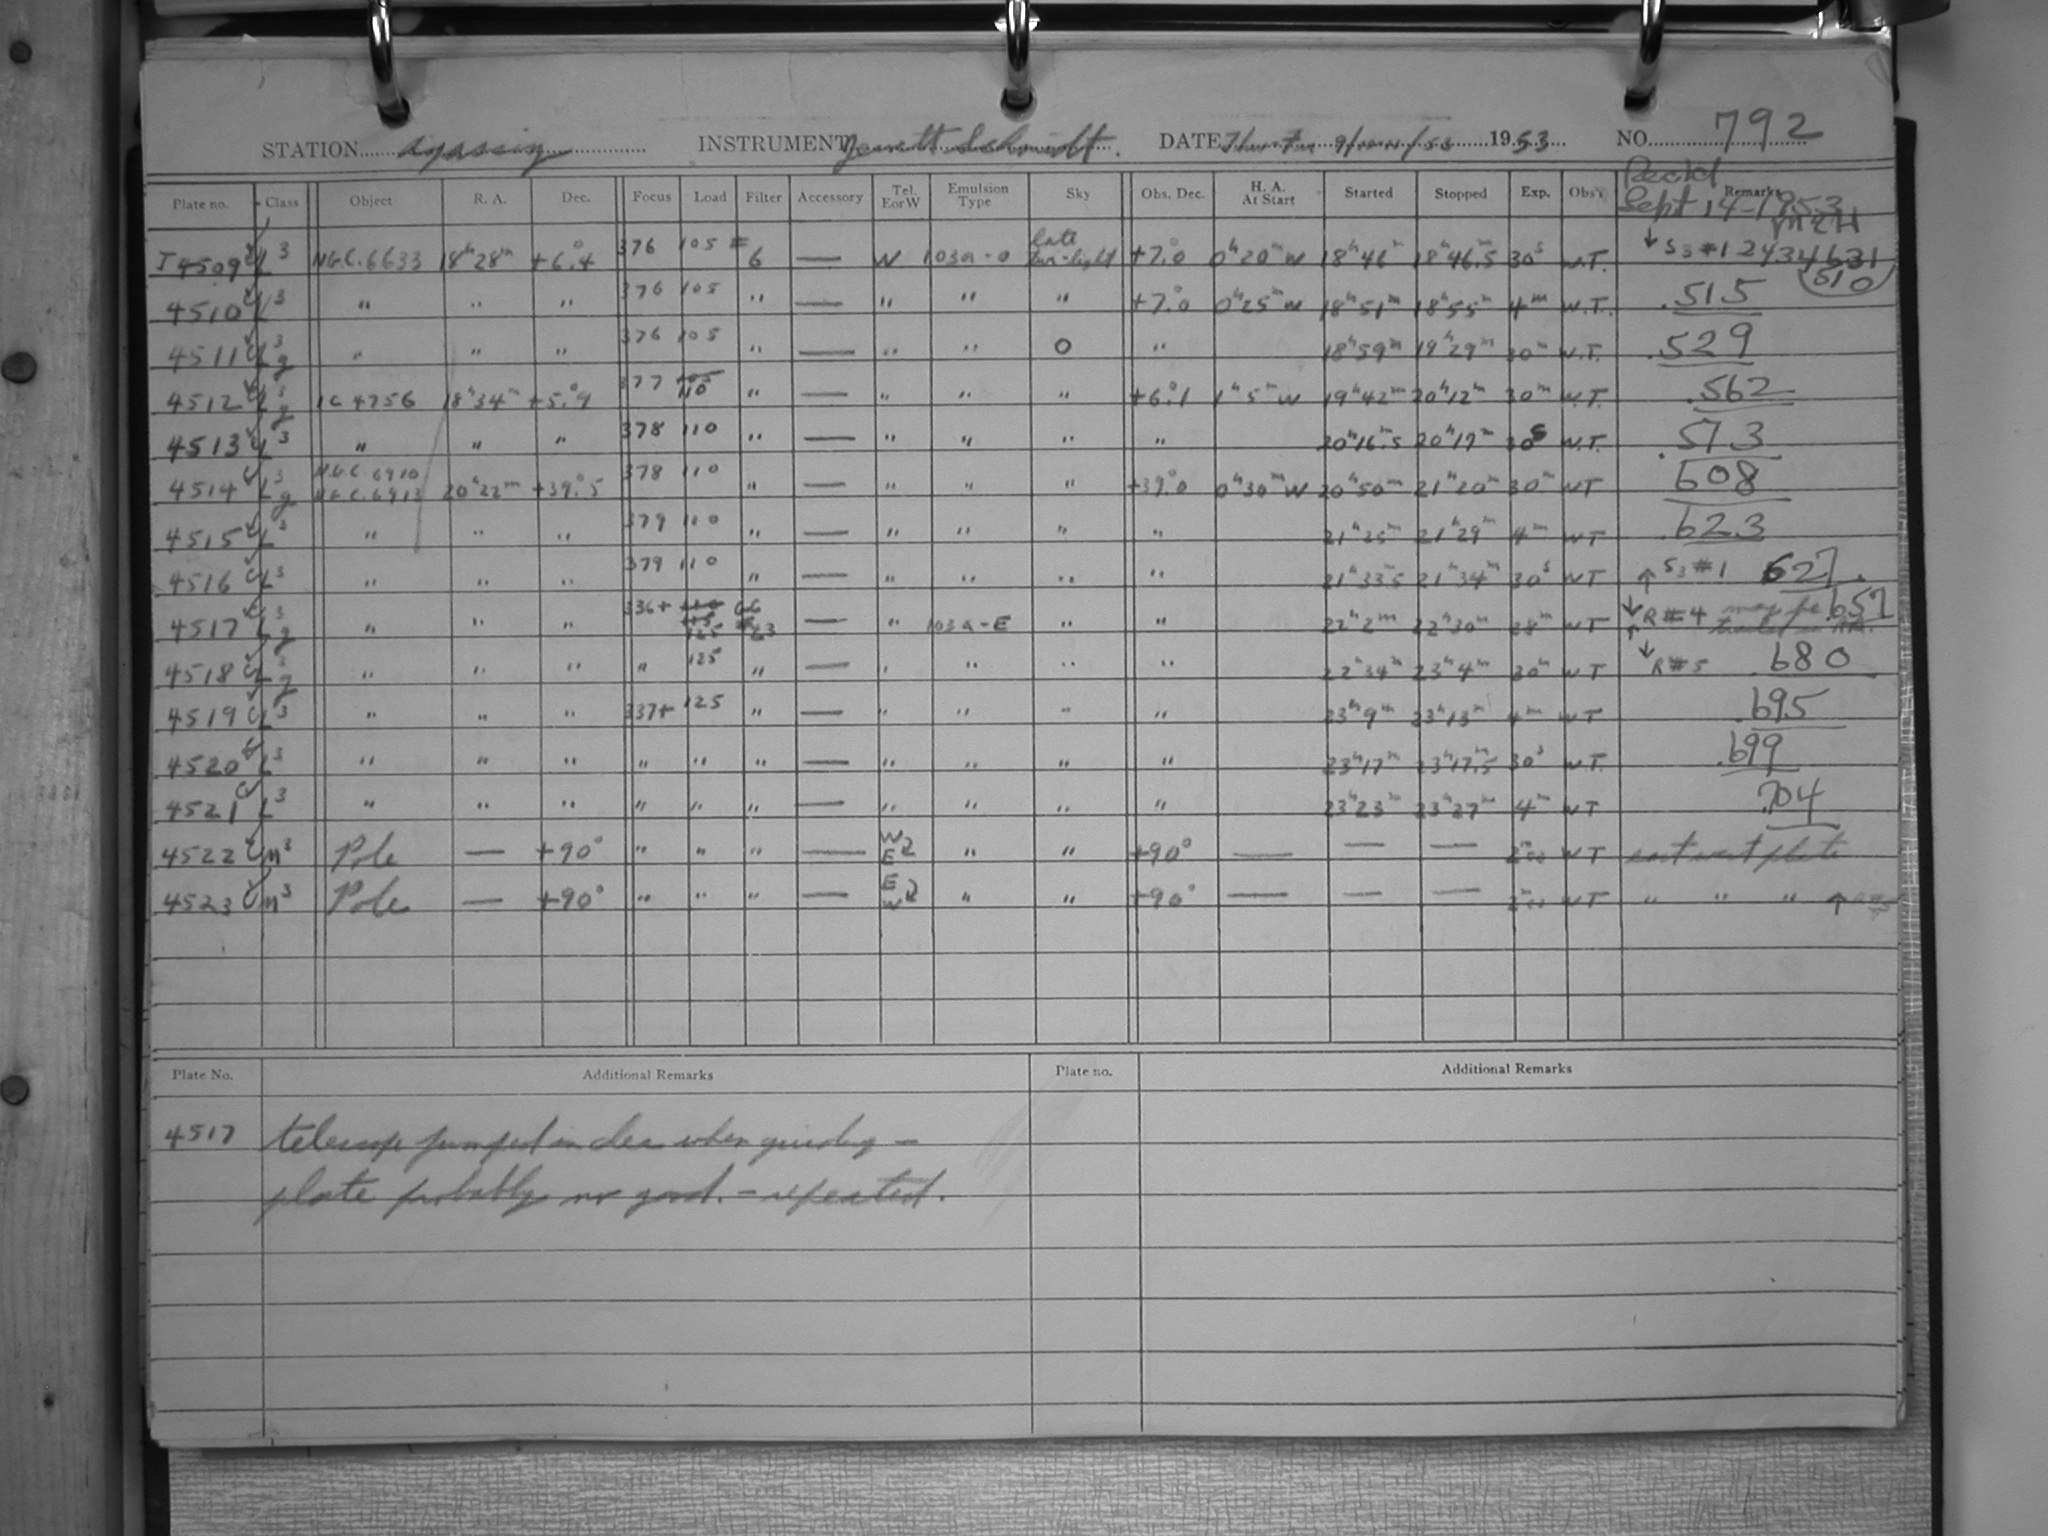 STATION Agassiz INSTRUMENT Jewett Schmidt. DATE Thur-Fri 9/ 1953 NO. 792
Plate no. Class Object R. A. Dec. Focus Load Filter Accessory Tel. EorW Emulsion Type Sky Obs. Dec. H. A. At Start Started Stopped Exp. Obs'r Remarks
Rec'd Sept 14-1953 MRH
J 4509 L 3 N.G.C. 6633 18h28m +6.°4 376 105 # 6 — W 103a-O late twi-light +7.°0 0h20m W 18h46m 18h46.m5 30s W.T. ↓ S3 #1 24334631 510
4510 L 3 " " " 376 105 " — " " " +7.°0 0h25m W 18h51m 18h55m 4m W.T. .515
4511 L 3 g " " " 376 105 " — " " O " 18h59m 19h29m 30m W.T. .529
4512 L 3 g IC 4756 18h34m +5.°9 377 105 110 " — " " " +6.°1 1h5m W 19h42m 20h12m 30m W.T. .562
4513 L 3 " " " 378 110 " — " " " " 20h16.m5 20h17m 30s W.T. .573
4514 L 3 g N.G.C. 6910 N.G.C. 6913 20h22m +39.°5 378 110 " — " " " +39.°0 0h30m W 20h50m 21h20m 30m WT .608
4515 L 3 " " " 379 110 " — " " " " 21h25m 21h29m 4m WT .623
4516 L 3 " " " 379 110 " — " " " " 21h33.m5 21h34m 30s WT ↑ S3 #1 627.
4517 L 3 g " " " 336+ 110 115 125 63 — " 103a-E " " 22h2m 22h30m 28m WT ↓ ↑ R #4 may be trailed in .657
4518 L 3 g " " " " 125 " — " " " " 22h34m 23h4m 30m WT ↓ R #5 .680
4519 L 3 " " " 337+ 125 " — " " " " 23h9m 23h13m 4m WT .695
4520 L 3 " " " " " " — " " " " 23h17m 23h17.m5 30s WT .699
4521 L 3 " " " " " " — " " " " 23h23m 23h27m 4m WT .704
4522 m 3 Pole — +90° " " " — W E " " +90° — — — WT east west plate
4523 m 3 Pole — +90° " " " — E W " " +90° — — — WT " " " ↑
Plate No. Additional Remarks Plate no. Additional Remarks
4517 telescope jumped in dec when guiding —
plate probably no good. — repeated.